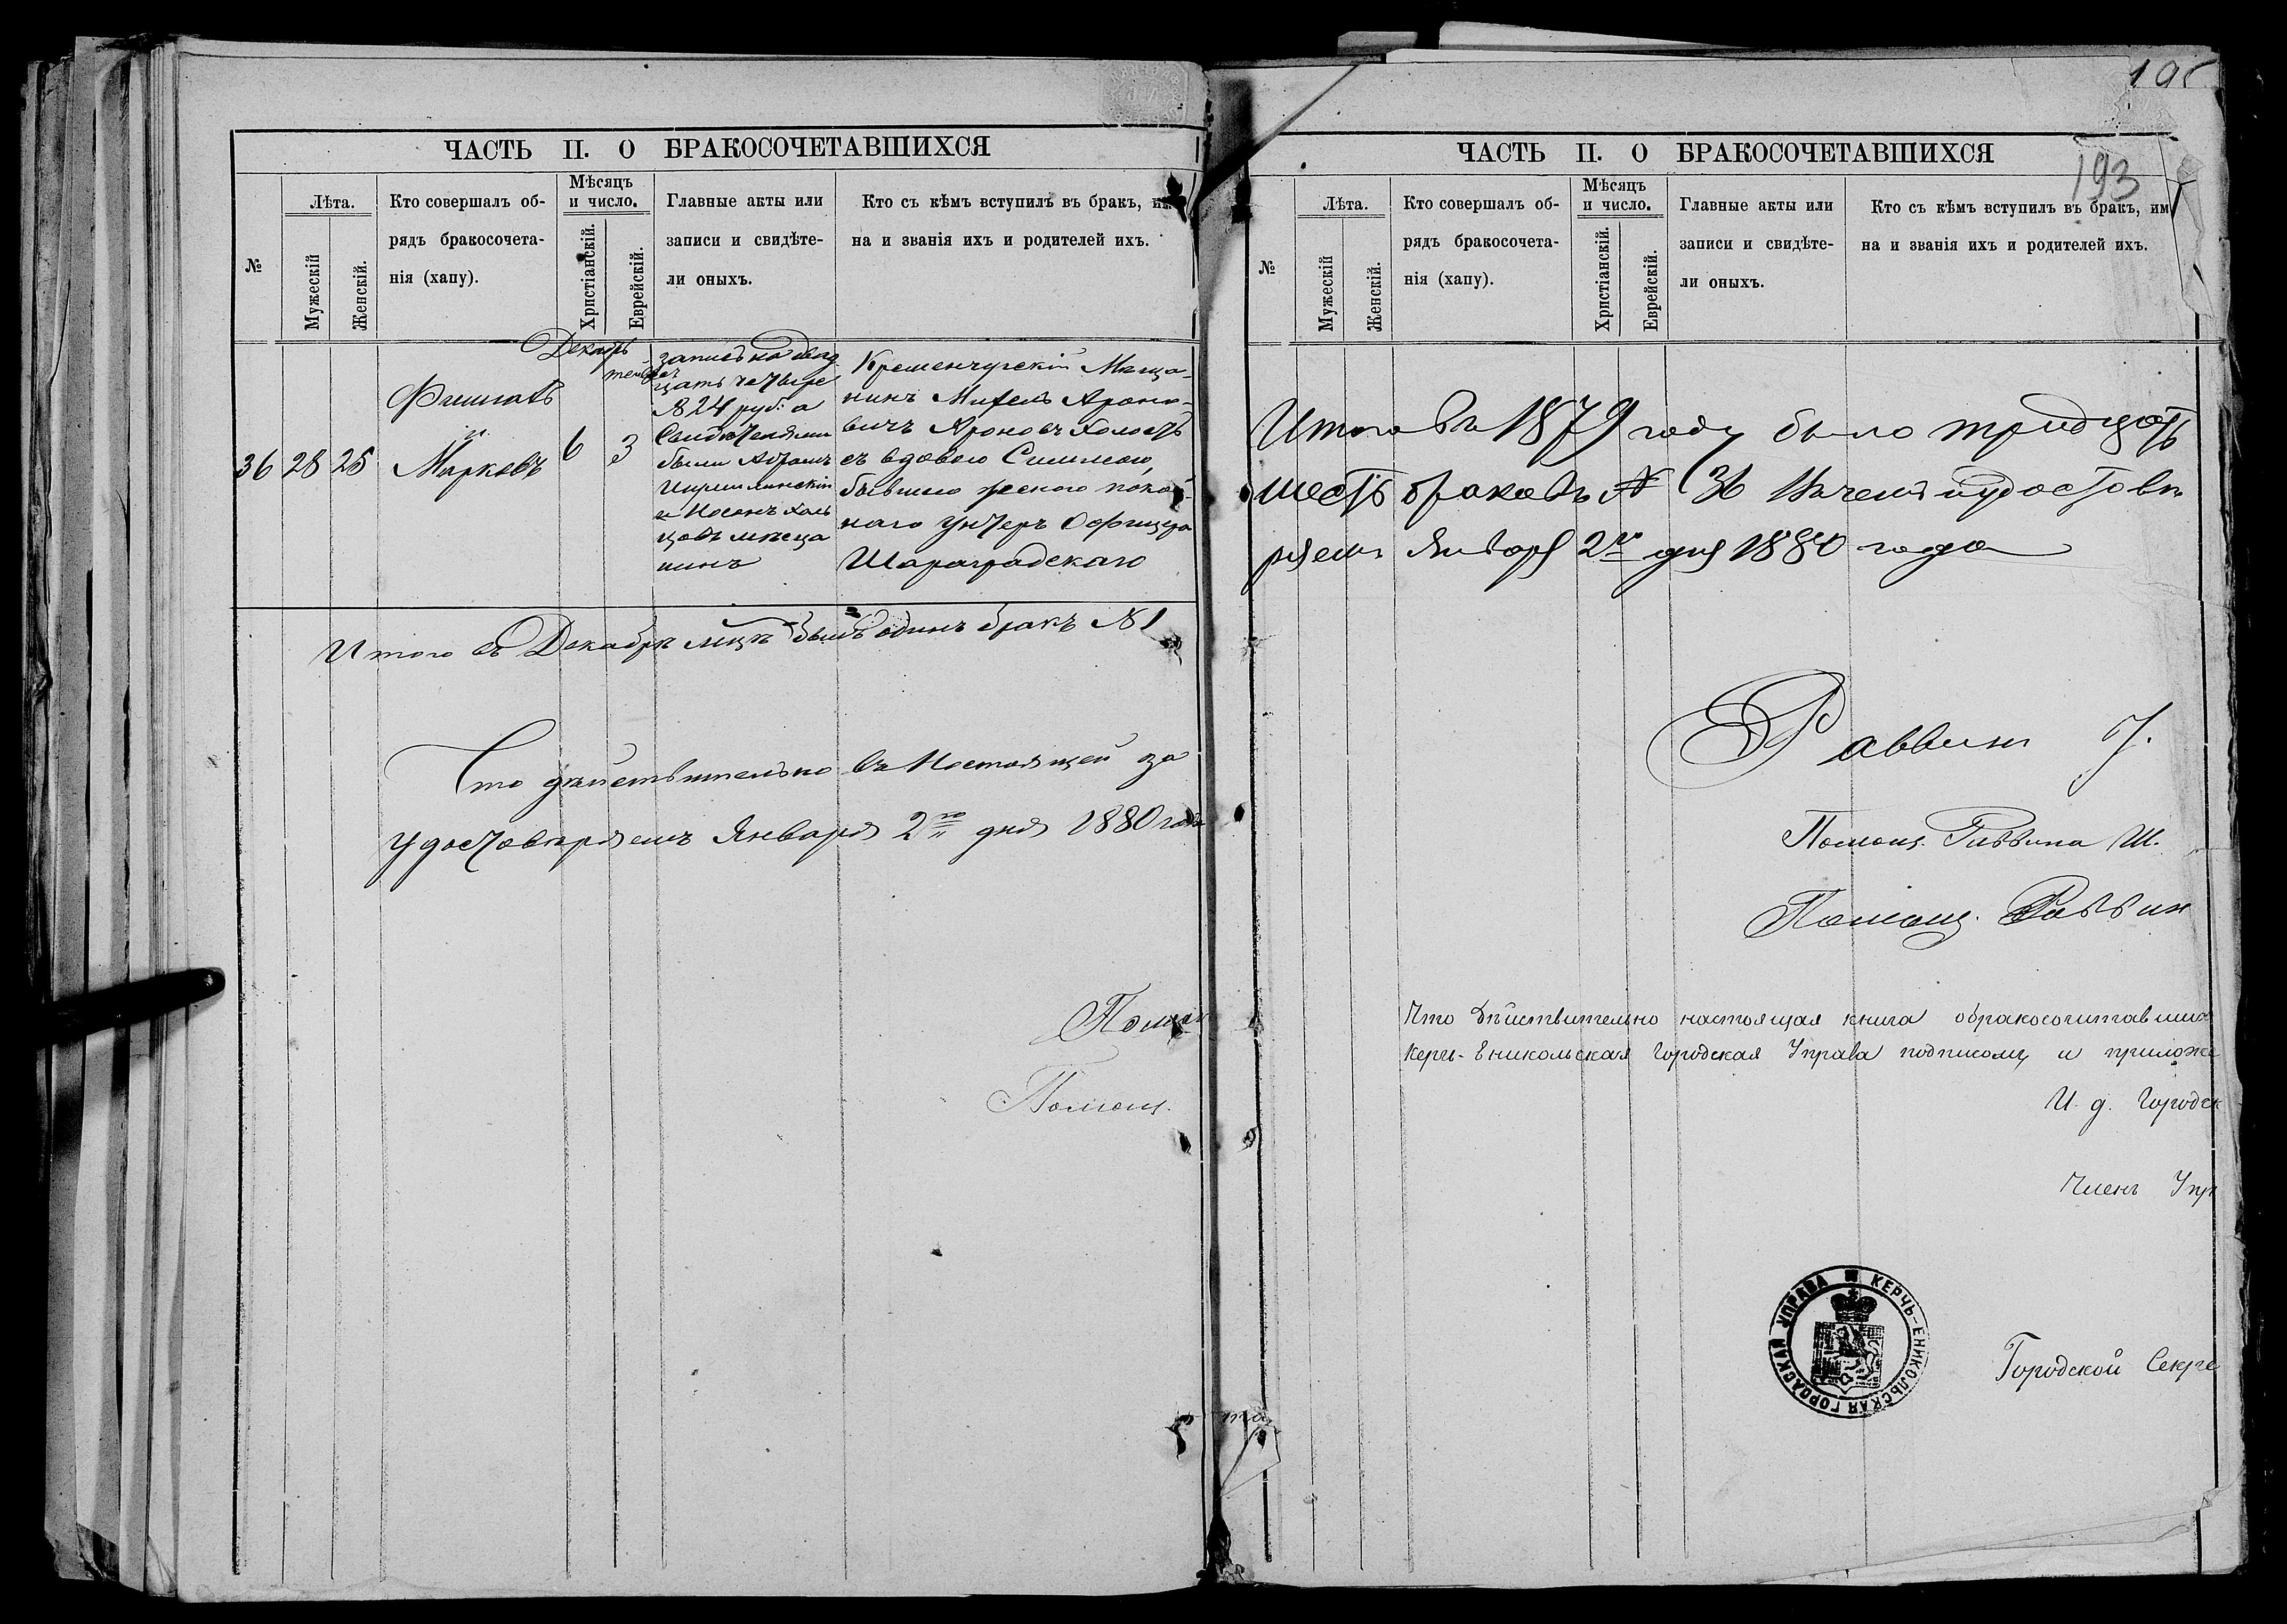 ЧАСТЬ II. О БРАКОСОЧЕТАВШИХСЯ
№
Лѣта.
Мужескій
Женскій.
Кто совершалъ об-
рядъ бракосочета-
нія (хапу).
Мѣсяцъ
и число.
Христіанскій.
Еврейскій.
Главные акты или
записи и свидѣте-
ли оныхъ.
Кто съ кѣмъ вступилъ въ бракъ, им
на и званія ихъ и родителей ихъ.
Декабрь
36
28
25
Фишманъ
и
Марковъ
6
3
запись на двад
цать четыре
№ 24 руб: а
Свидѣтелями
были Абрамъ
и Носонъ
мѣща
нинъ
Кременчугскій Мѣща-
нинъ Ароно-
вичъ Ароновъ Холостъ
съ вдовою Симмою,
бывшею женою покой-
наго Унтеръ Офицера
Шараградскаго
Итого въ Декабрѣ мцѣ былъ одинъ бракъ № 1
Что дѣйствительно въ Настоящей за
удостовѣряемъ Января 2го дня 1880 года
Помощ
Помощ.
195
193
ЧАСТЬ II. О БРАКОСОЧЕТАВШИХСЯ
№
Лѣта.
Мужескій
Женскій.
Кто совершалъ об-
рядъ бракосочета-
нія (хапу).
Мѣсяцъ
и число.
Христіанскій.
Еврейскій.
Главные акты или
записи и свидѣте-
ли оныхъ.
Кто съ кѣмъ вступилъ въ бракъ, им
на и званія ихъ и родителей ихъ.
Итого въ 1879 году было тридцать
шесть браковъ № 36 Въ чемъ и удостовѣ
ряемъ Января 2го дня 1880 года
Раввинъ
Помощ. Раввина Ш.
Помощ. Раввин
Что дѣйствительно настоящая книга о бракосочитавших
Керчь-Еникольская Городская Управа подписомъ и приложе
И. д. Городск
Членъ Упр
КЕРЧЬ-ЕНИКОЛЬСКАЯ ГОРОДСКАЯ УПРАВА
Городской Секре